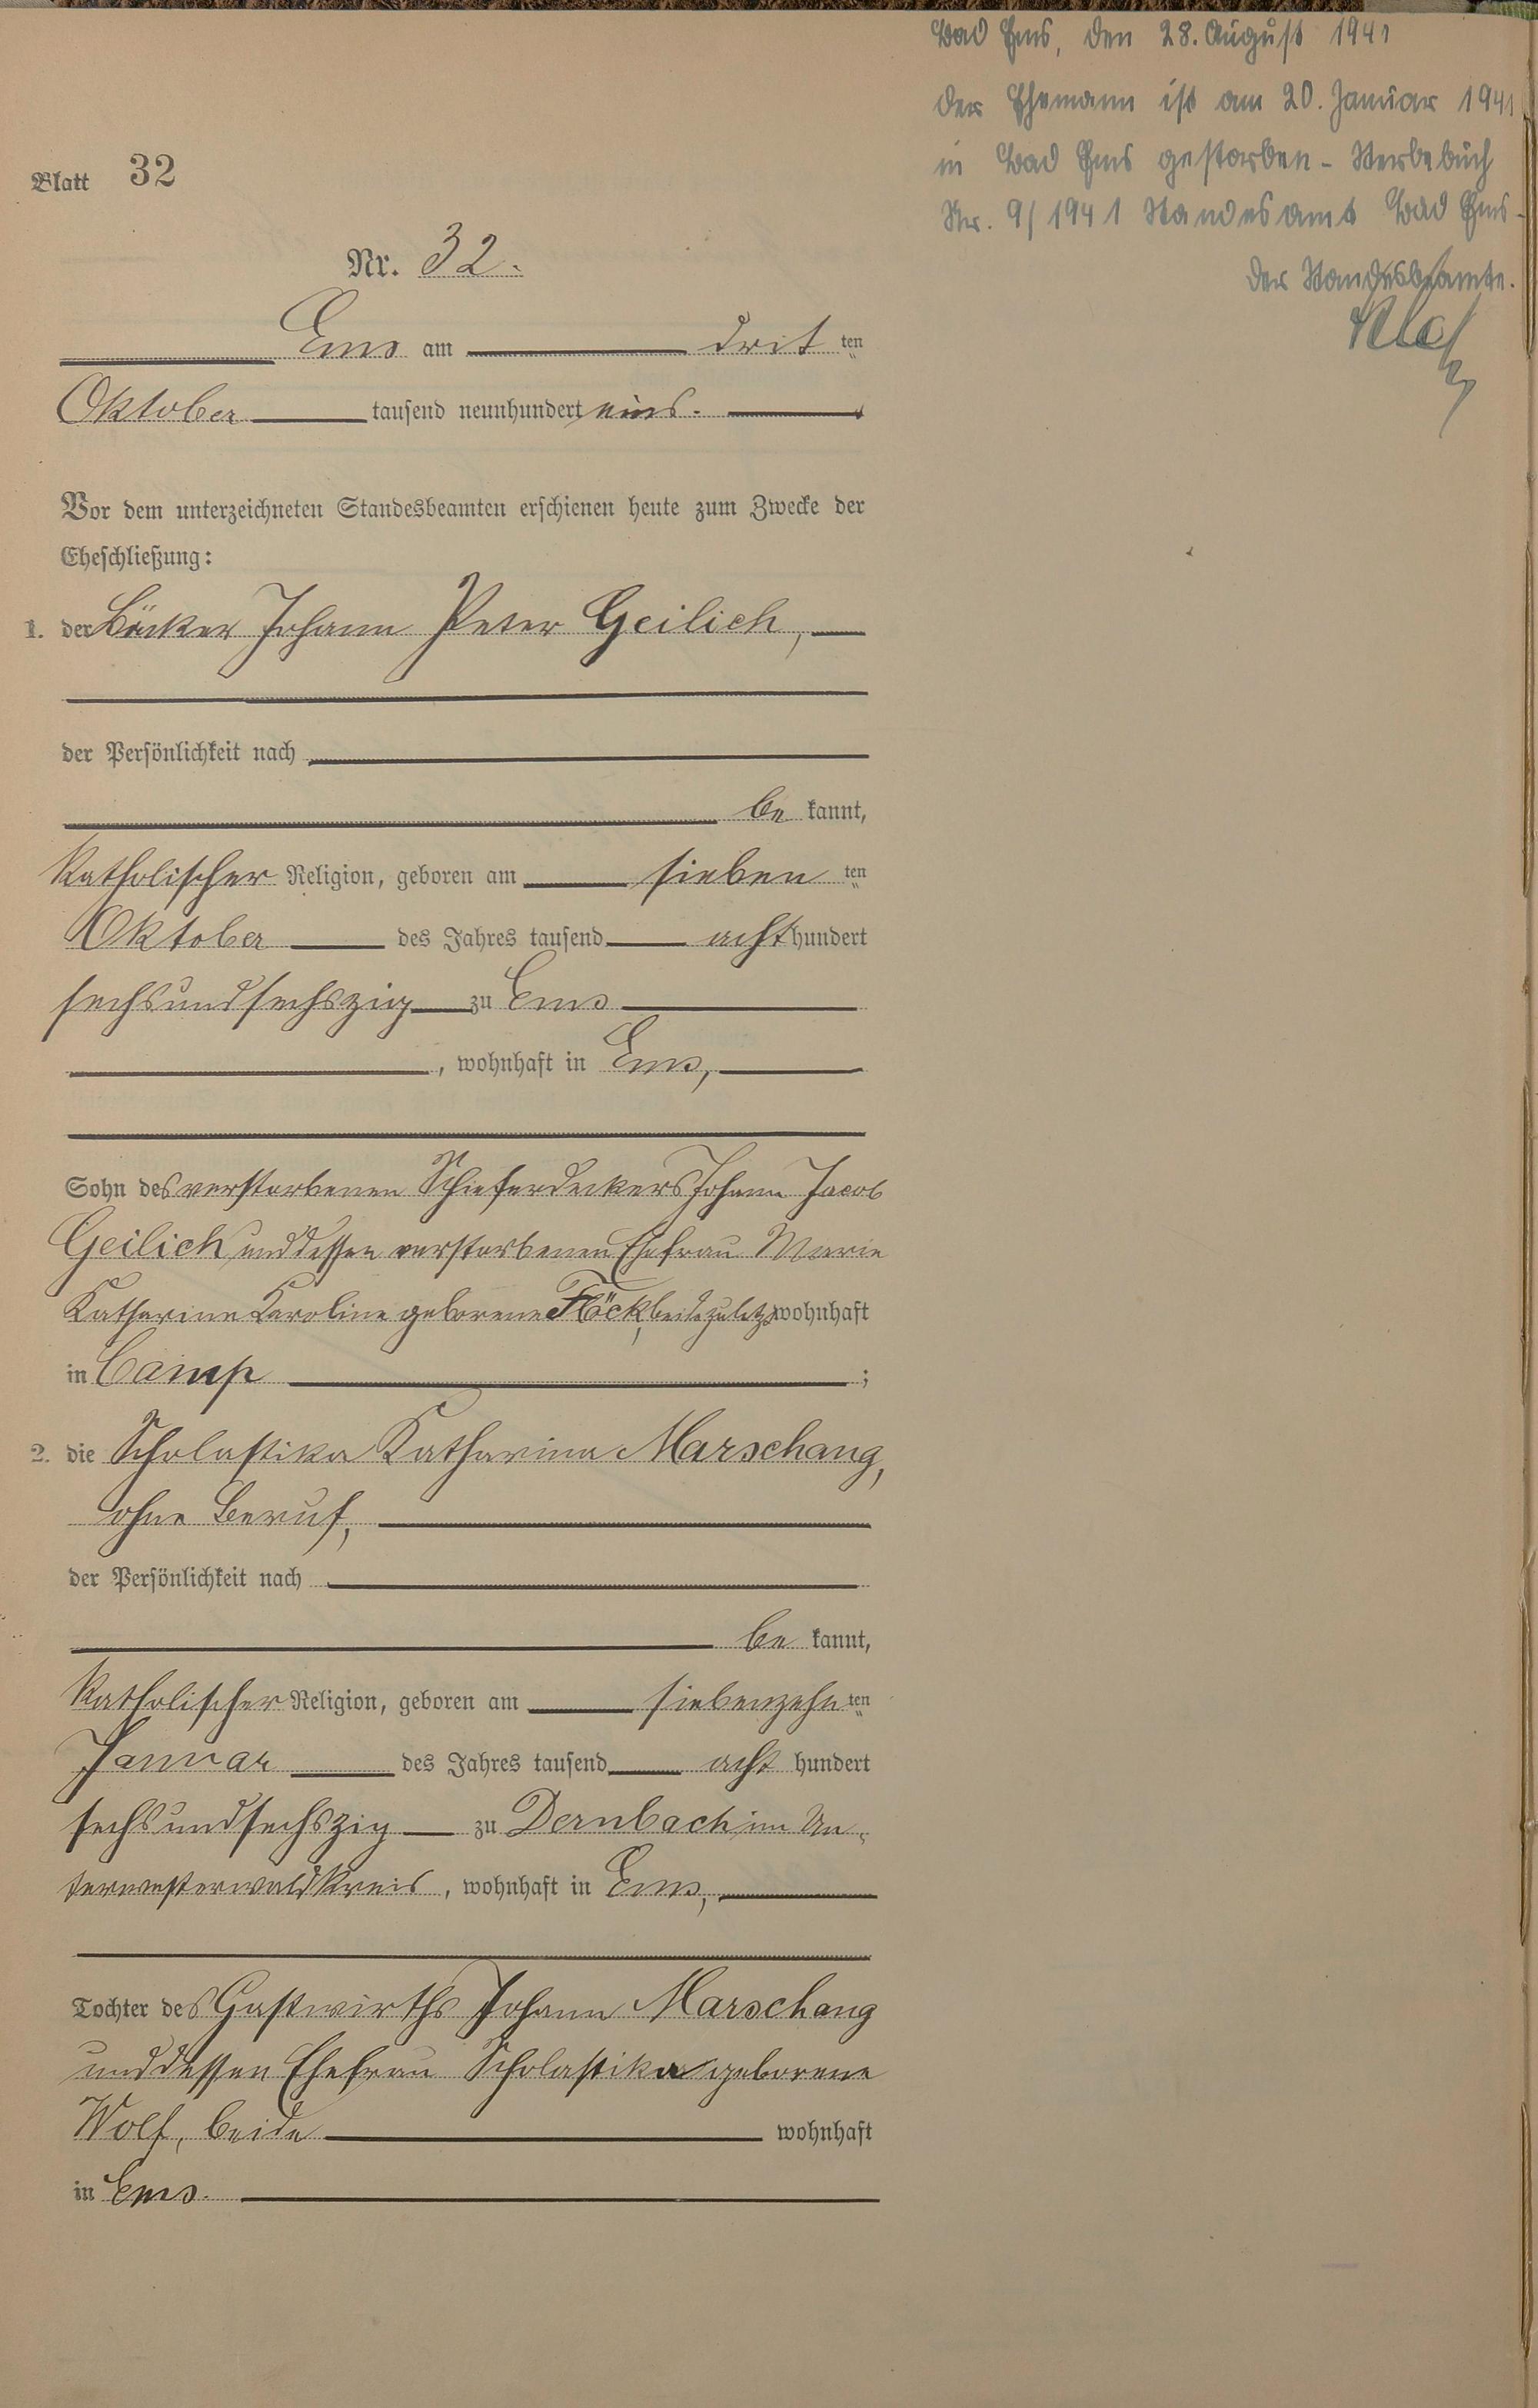 Blatt 32
Nr. 32.
Ems am dritten
Oktober tausend neunhundert eins.
Vor dem unterzeichneten Standesbeamten erschienen heute zum Zwecke der
Eheschließung:
1. der Bäcker Johann Peter Geilich,
der Persönlichkeit nach
be kannt,
katholischer Religion, geboren am siebenten
Oktober des Jahres tausend acht hundert
sechsundsechszig zu Ems
, wohnhaft in Ems,
Sohn des verstorbenen Schieferdeckers Johann Jacob
Geilich und dessen verstorbenen Ehefrau Marie
Katharine Karoline geborene Flöck, beide zuletzt wohnhaft
in Camp ;
2. die Scholastika Katharina Marschang,
ohne Beruf,
der Persönlichkeit nach
be kannt,
katholischer Religion, geboren am siebenzehnten
Januar des Jahres tausend acht hundert
sechsundsechszig zu Dernbach im Un-
terwesterwaldkreis, wohnhaft in Ems,
Tochter des Gastwirths Johann Marschang
und dessen Ehefrau Scholastika geborene
Wolf, beide wohnhaft
in Ems.
Bad Ems, den 28. August 1941
Der Ehemann ist am 20. Januar 1941
in Bad Ems gestorben - Sterbebuch
Nr. 9/1941 Standesamt Bad Ems -
Der Standesbeamte.